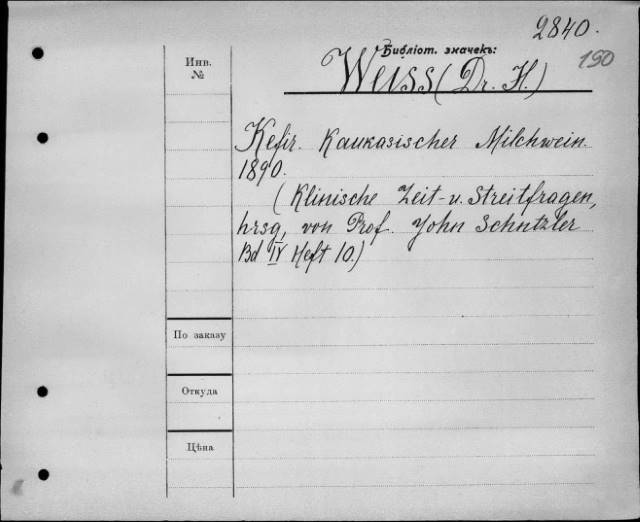 2840.
Библіот. значекъ:
150
Инв.
№
Weiss (Dr. H.)
Kefir. Kaukasischer Milchwein.
1890.
(Klinische Zeit- u. Streitfragen,
hrsg. von Prof. John Schntzler
Bd IV Heft 10.)
По заказу
Откуда
Цѣна